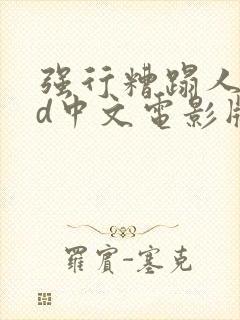 强行糟蹋人
d中文电影版
羅賓-塞克